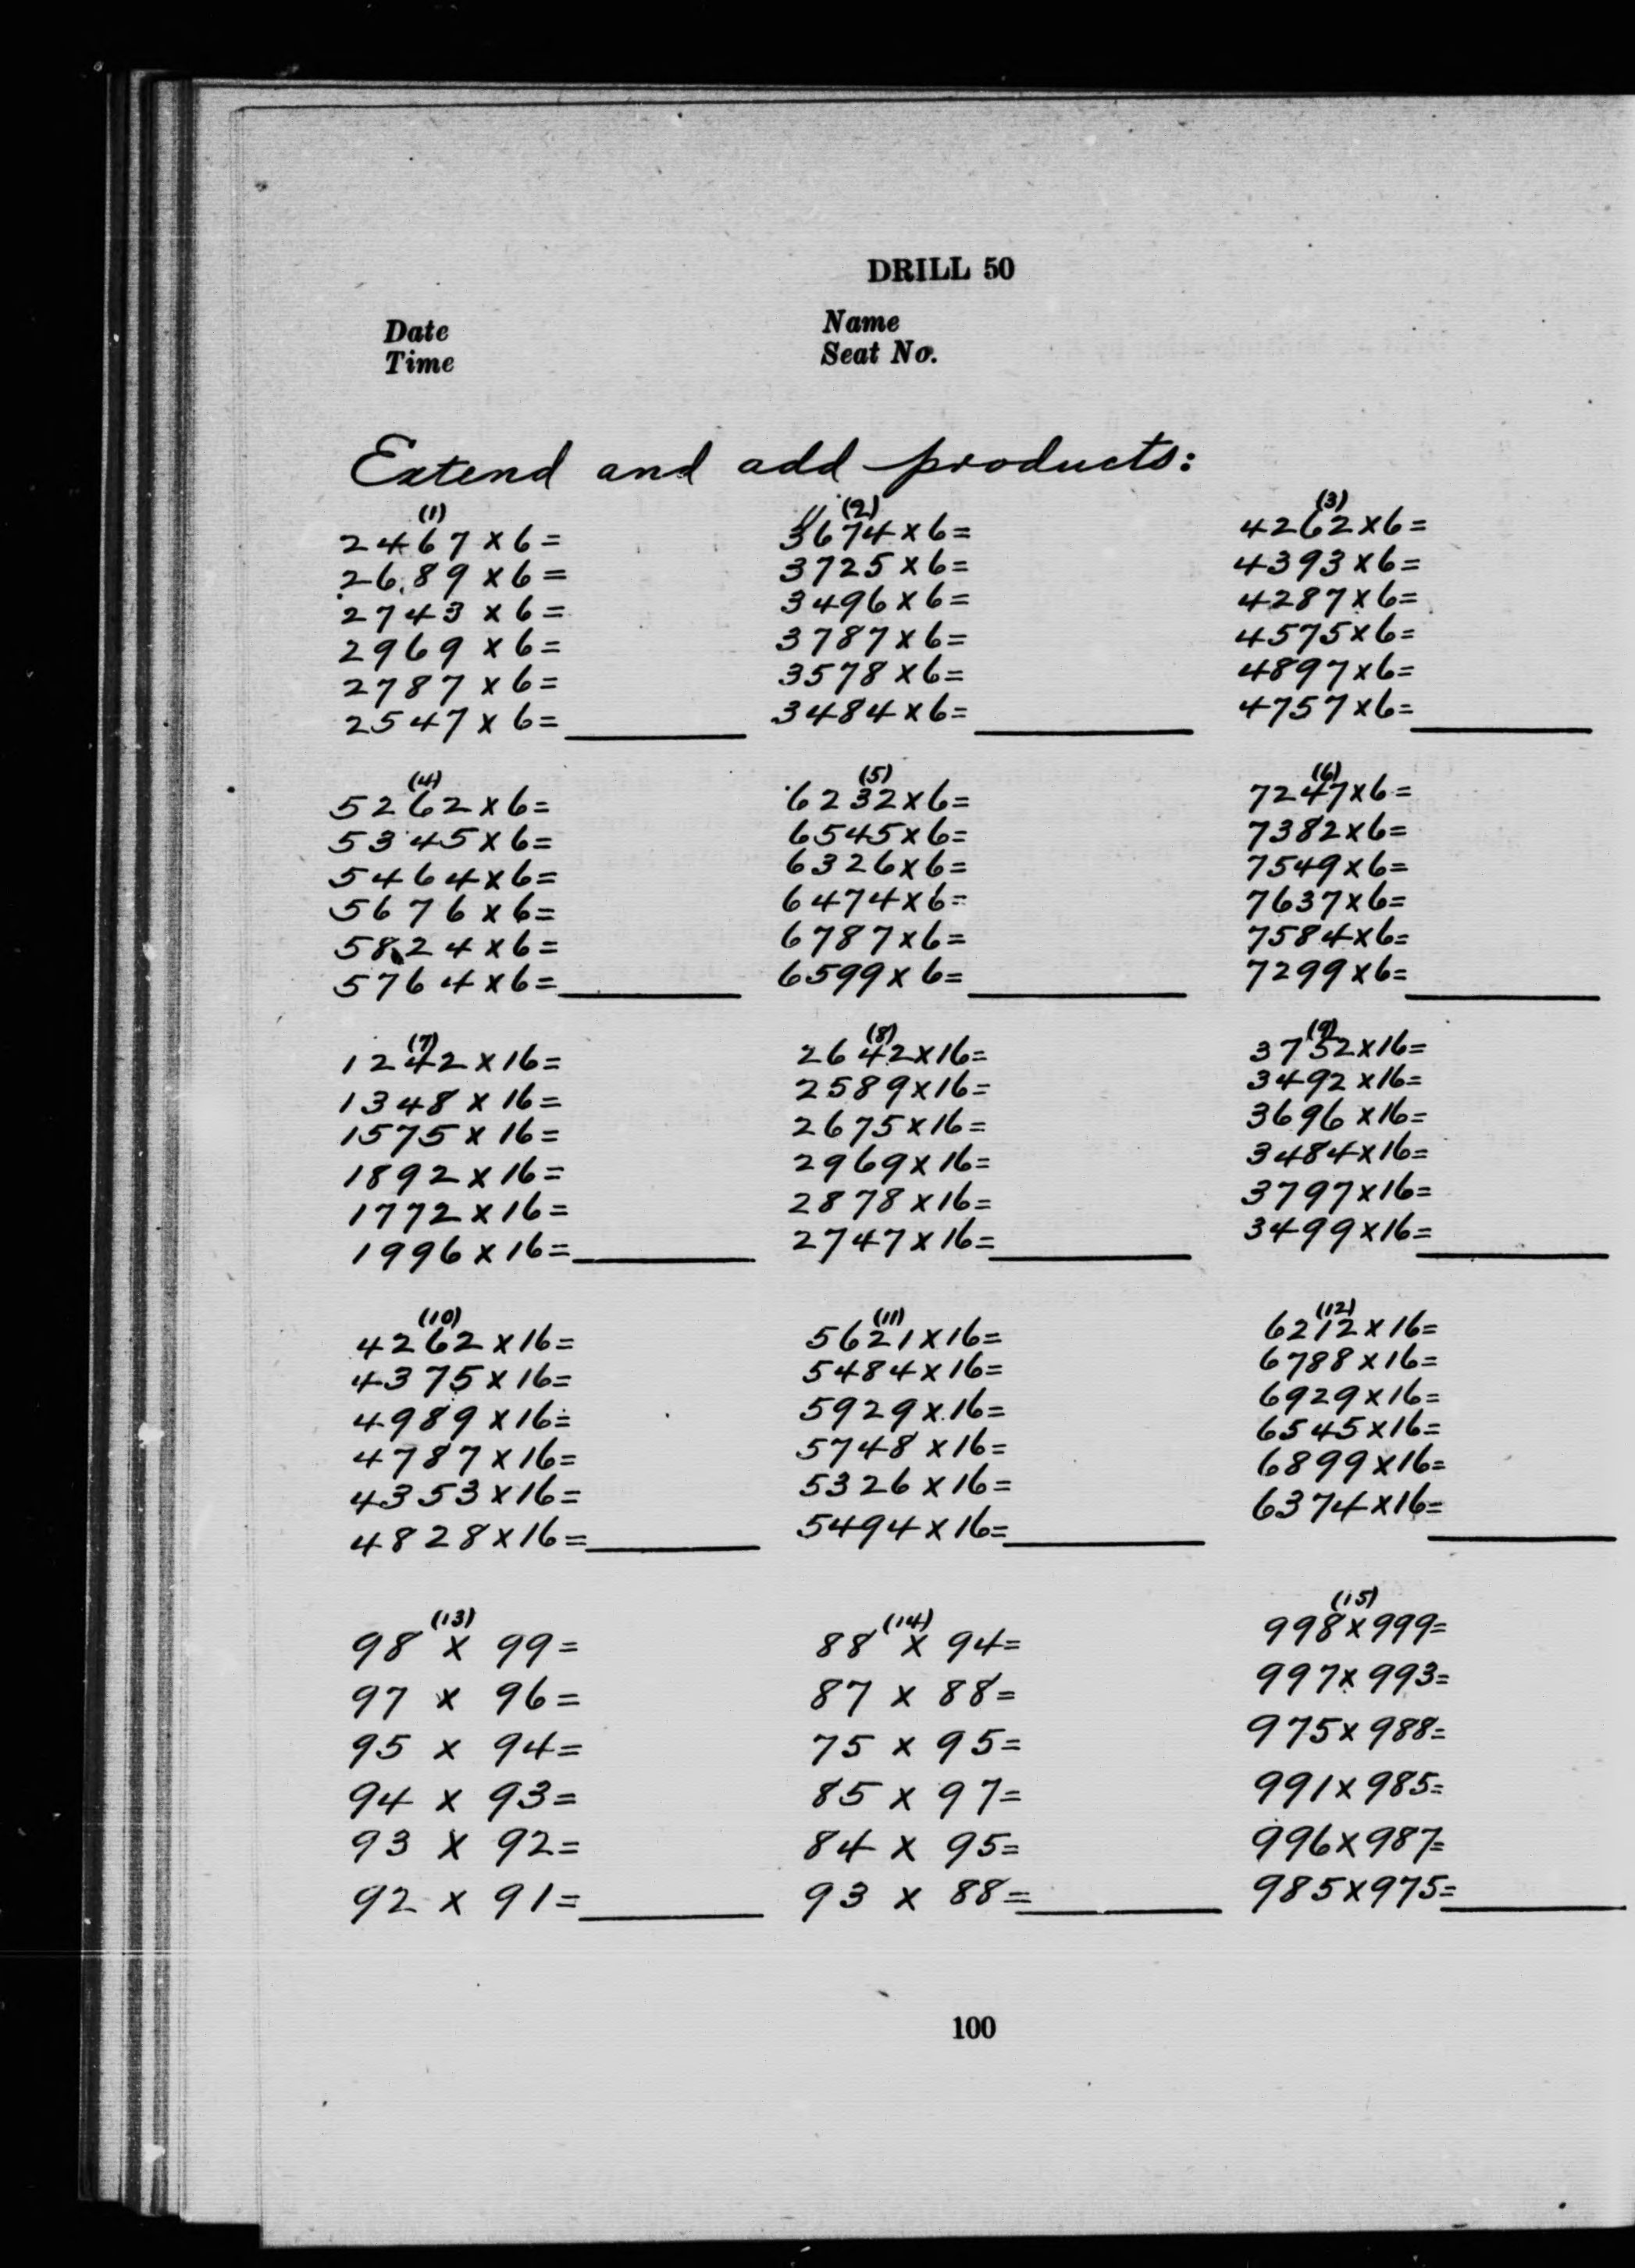 DRILL 50
Date
Time
Name
Seat No.
Extend and add products:
(1)
2467 x 6 =
2689 x 6 =
2743 x 6 =
2969 x 6 =
2787 x 6 =
2547 x 6 =
(2)
3674 x 6 =
3725 x 6 =
3496 x 6 =
3787 x 6 =
3578 x 6 =
3484 x 6 =
(3)
4262 x 6 =
4393 x 6 =
4287 x 6 =
4575 x 6 =
4897 x 6 =
4757 x 6 =
(4)
5262 x 6 =
5345 x 6 =
5464 x 6 =
5676 x 6 =
5824 x 6 =
5764 x 6 =
(5)
6232 x 6 =
6545 x 6 =
6326 x 6 =
6474 x 6 =
6787 x 6 =
6599 x 6 =
(6)
7247 x 6 =
7382 x 6 =
7549 x 6 =
7637 x 6 =
7584 x 6 =
7299 x 6 =
(7)
1242 x 16 =
1348 x 16 =
1575 x 16 =
1892 x 16 =
1772 x 16 =
1996 x 16 =
(8)
2642 x 16 =
2589 x 16 =
2675 x 16 =
2969 x 16 =
2878 x 16 =
2747 x 16 =
(9)
3752 x 16 =
3492 x 16 =
3696 x 16 =
3484 x 16 =
3797 x 16 =
3499 x 16 =
(10)
4262 x 16 =
4375 x 16 =
4989 x 16 =
4787 x 16 =
4353 x 16 =
4828 x 16 =
(11)
5621 x 16 =
5484 x 16 =
5929 x 16 =
5748 x 16 =
5326 x 16 =
5494 x 16 =
(12)
6212 x 16 =
6788 x 16 =
6929 x 16 =
6545 x 16 =
6899 x 16 =
6374 x 16 =
(13)
98 x 99 =
97 x 96 =
95 x 94 =
94 x 93 =
93 x 92 =
92 x 91 =
(14)
88 x 94 =
87 x 88 =
75 x 95 =
85 x 97 =
84 x 95 =
93 x 88 =
(15)
998 x 999 =
997 x 993 =
975 x 988 =
991 x 985 =
996 x 987 =
985 x 975 =
100